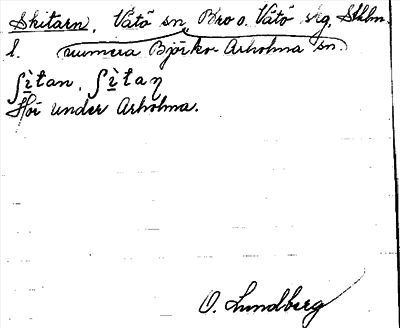 Skitarn, Vätö sn, Bro o. Vätö skg, Sthlm
l. (numera Björkö-Arholma sn.)
ʃì̠tan, ʃì̠taɳ
Hör under Arholma.
O. Lundberg